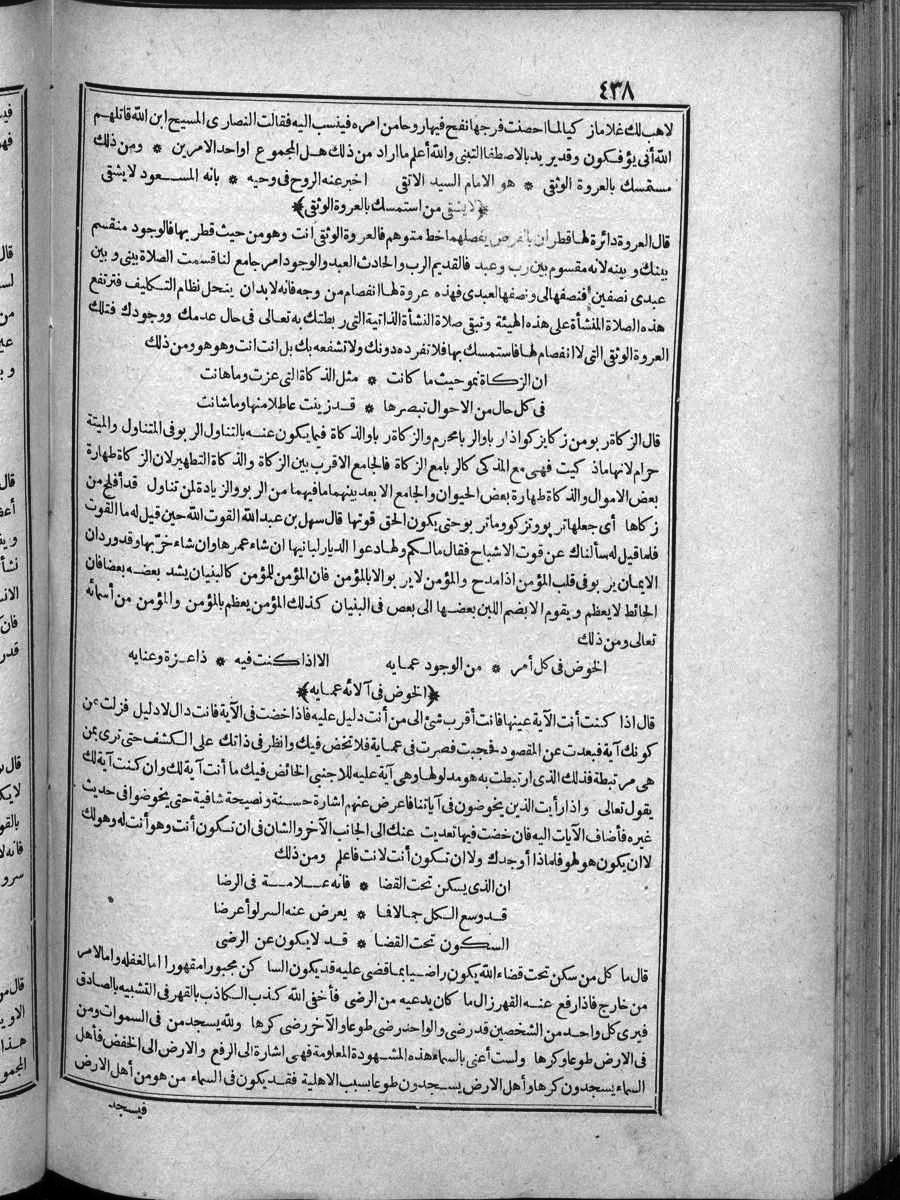 ٤٣٨
لاهب لك غلاما زكيا لما احصنت فرجها نفخ فيها روحا من امره فينسب اليه فقالت النصارى المسيح ابن الله قاتلهم
الله أنى يؤفكون وقد يريد بالاصطفا التبنى والله أعلم ما اراد من ذلك هل المجموع او احد الامرين * ومن ذلك
مستمسك بالعروة الوثقى * هو الامام السيد الاتقى اخبر عنه الروح فى وحيه * بانه المسعود لا يشقى
﴿لا يشقى من استمسك بالعروة الوثقى﴾
قال العروة دائرة لها قطران بالفرض يفصلهما خط متوهم فالعروة الوثقى انت وهو من حيث قطر بها فالوجود منقسم
بينك وبينه لانه مقسوم بين رب وعبد فالقديم الرب والحادث العبد والوجود امر جامع لنا قسمت الصلاة بينى وبين
عبدى نصفين فنصفها لى ونصفها لعبدى فهذه عروة لها انفصام من وجه فانه لابد ان ينحل نظام التكليف فترتفع
هذه الصلاة المنشأة على هذه الهيئة وتبقى صلاة النشأة الذاتية التى ربطتك به تعالى فى حال عدمك ووجودك فتلك
العروة الوثقى التى لا انفصام لها فاستمسك بها فلا تفرده دونك ولا تشفعه بك بل انت انت وهو هو ومن ذلك
ان الزكاة نمو حيث ما كانت * مثل الذكاة التى عزت وما هانت
فى كل حال من الاحوال تبصرها * قد زينت عاطلا منها وما شانت
قال الزكاة ربو من زكا يزكو اذا ربا والربا محرم والزكاة ربا والذكاة فيما يكون عنه بالتناول الربو فى المتناول والميتة
حرام لانها ما ذكيت فهى مع المذكى كالربا مع الزكاة فالجامع الاقرب بين الزكاة والذكاة التطهير لان الزكاة طهارة
بعض الاموال والذكاة طهارة بعض الحيوان والجامع الابعد بينهما ما فيهما من الربو والزيادة لمن تناول قد أفلح من
زكاها أى جعلها تربو وتزكو وما تربو حتى يكون الحق قوتها قال سهل بن عبد الله القوت الله حين قيل له ما القوت
فلما قيل له سألناك عن قوت الاشباح فقال مالكم ولها دعوا الديار لبانيها ان شاء عمرها وان شاء خرّبها وقد ورد ان
الايمان يربو فى قلب المؤمن اذا مدح والمؤمن لا يربو الا بالمؤمن فان المؤمن للمؤمن كالبنيان يشد بعضه بعضا فان
الحائط لا يعظم ويقوم الا بضم اللبن بعضها الى بعض فى البنيان كذلك المؤمن يعظم بالمؤمن والمؤمن من أسمائه
تعالى ومن ذلك
الخوض فى كل أمر * من الوجود عمايه الا اذا كنت فيه * ذا عزة وعنايه
﴿الخوض فى آلائه عمايه﴾
قال اذا كنت أنت الآية عينها فانت أقرب شئ الى من أنت دليل عليه فاذا خضت فى الآية فانت دال لا دليل فزلت عن
كونك آية فبعدت عن المقصود فحجبت فصرت فى عماية فلا تخض فيك وانظر فى ذاتك على الكشف حتى ترى بمن
هى مرتبطة فذلك الذى ارتبطت به هو مدلولها وهى آية عليه للاجنبى الخائض فيك ما أنت آية لك وان كنت آية لك
يقول تعالى واذا رأيت الذين يخوضون فى آياتنا فاعرض عنهم اشارة حسنة ونصيحة شافية حتى يخوضوا فى حديث
غيره فأضاف الآيات اليه فان خضت فيها تعديت عنك الى الجانب الآخر والشان فى ان تكون أنت وهو أنت له وهو لك
لا ان يكون هو لهو فلماذا أوجدك ولا ان تكون أنت لانت فاعلم ومن ذلك
ان الذى يسكن تحت القضا * فانه علامة فى الرضا
قد وسع الكل جمالا فما * يعرض عنه السر لو أعرضا
السكون تحت القضا * قد لا يكون عن الرضى
قال ما كل من سكن تحت قضاء الله يكون راضيا بما قضى عليه قد يكون الساكن مجبورا مقهورا اما لغفله واما لامر
من خارج فاذا رفع عنه القهر زال ما كان يدعيه من الرضى فأخفى الله كذب الكاذب بالقهر فى التشبيه بالصادق
فيرى كل واحد من الشخصين قد رضى والواحد رضى طوعا والآخر رضى كرها ولله يسجد من فى السموات ومن
فى الارض طوعا وكرها ولست أعنى بالسماء هذه المشهودة المعلومة فهى اشارة الى الرفع والارض الى الخفض فأهل
السماء يسجدون كرها وأهل الارض يسجدون طوعا بسبب الاهلية فقد يكون فى السماء من هو من أهل الارض
فيسجد